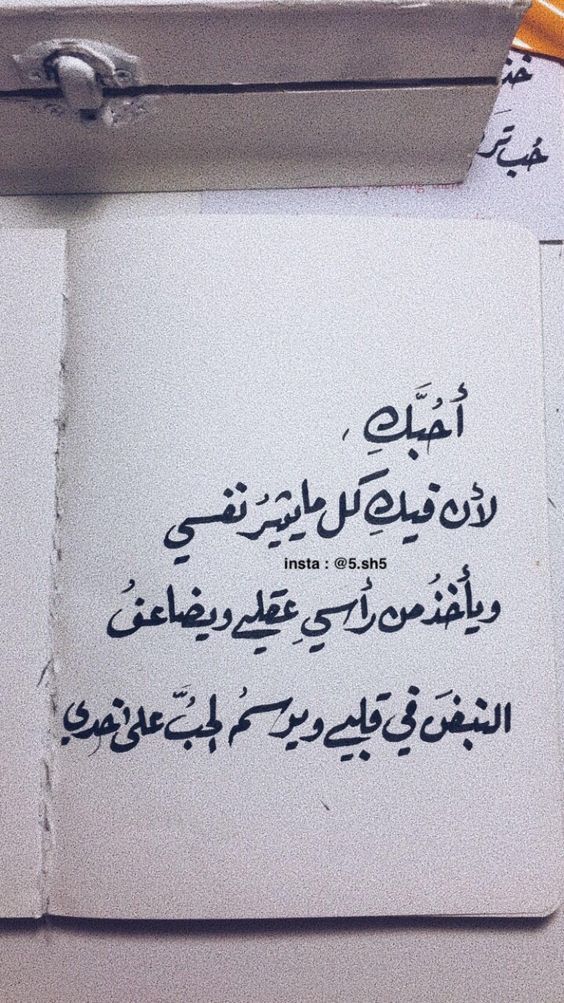 حُب
أُحُبَّكِ ،
لأن فيكِ كل ما يثيرُ نفسي
insta : @5.sh5
ويأخذُ من رأسي عقلي ويضاعفُ
النبضَ في قلبي ويرسمُ الحُبَّ على خدي